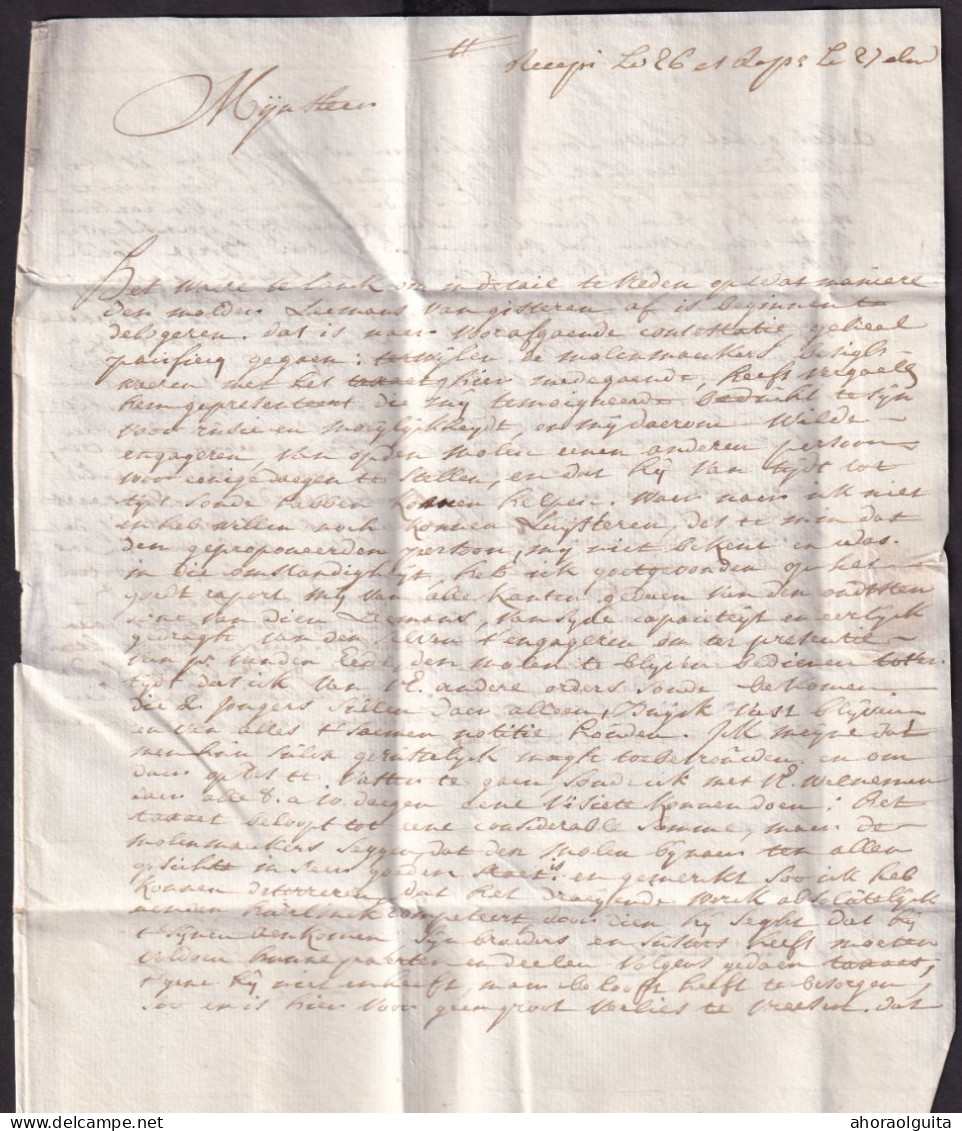 Recepi Le 26 et Resp: Le 27 dito
Mijn Heer
Het waere te lanck om in detaie te treden op wat maniere
den molder Leemans van gisteren af is beginnen te
delogeren. dat is naer voorafgaende contestatie geheel
gegaen: terwijlen de molenmaekers besigh
waeren met het taxaet hier medegaende, heeft
hem gepresenteert die mij temoigneerde beducht te sijn
voor rusie en moeylijckheydt, en mij daerom wilde
engageren, van op den molen eenen anderen persoon
voor eenige daegen te stellen, en dat hij van tijdt tot
tijdt soude hebben konnen helpen. Waer naer ick niet
en heb willen noch konnen Luijsteren, des te min dat
den geproponeerden persoon, mij niet bekent en was.
in die omstandigheijt, heb ick goetgevonden op het
goedt raport mij van alle kanten gedaen van den
van dien Leemans, van sijne capaciteijt en eerlijck
gedragh van den selven t'engageren om ter presentie
van handen Eedt, den molen te blijven bedienen tot
tijdt dat ick van VE. andere orders soude bekomen
die 2 jongers sullen daer alleen vast blijven
en van alles t'saemen notitie houden. Ick meyne dat
men hun sulx gerustelijck magh toebetrouwen en om
daer op vast te gaen soude ick met VE. welnemen
daer alle 8. a 10. daegen eene visiete konnen doen: Het
taxaet beloopt tot eene considerable somme, maer de
molenmaekers seggen dat den molen bynaer ten allen
opsichte in seer goeden staet is en gemerkt soo ick heb
konnen dat het draeyende werck absolutelijck
competeert, dewijlen hij seght dat hij
t sijnen aenkomen sijn broeders en susters heeft moeten
voldoen hunne paerten en deelen volgens gedaen taxaet,
t gene hij niet en heeft, maer belooft heeft te besorgen,
soo en is hier voor geen groot verlies te vreesen. dat
ahoraolguita